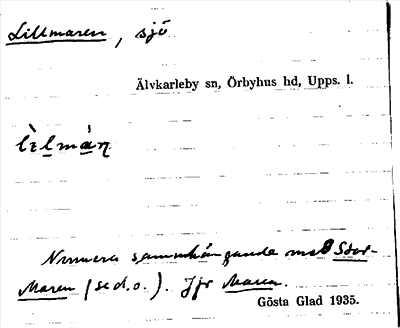 Lillmaren, sjö
Älvkarleby sn, Örbyhus hd, Upps. l.
lìlmánͅ
Numera sammanhängande med Stor-
Maren (se d.o.). Jfr Maren.
Gösta Glad 1935.